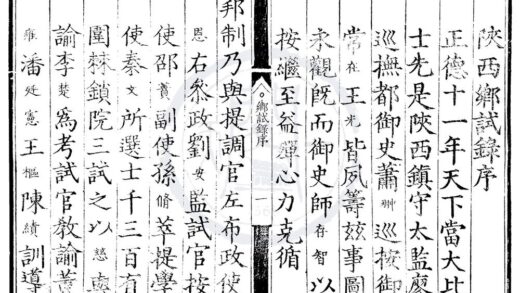 陝西鄉試錄序
正德十一年天下當大比
士先是陝西鎮守太監廖
巡撫都御史蕭翀巡按御
常在王光皆夙籌茲事圖
永觀既而御史師存智以
按繼至益殫心力克循
鄉試錄序
一
邦制乃與提調官左布政使
恩右叅政劉安監試官按
使邵副使孫脩萃提學
使秦文所選士千三百有
圍棘鎖院三試之以
諭李楚為考試官教諭
雍潘廷憲王樞陳績訓導